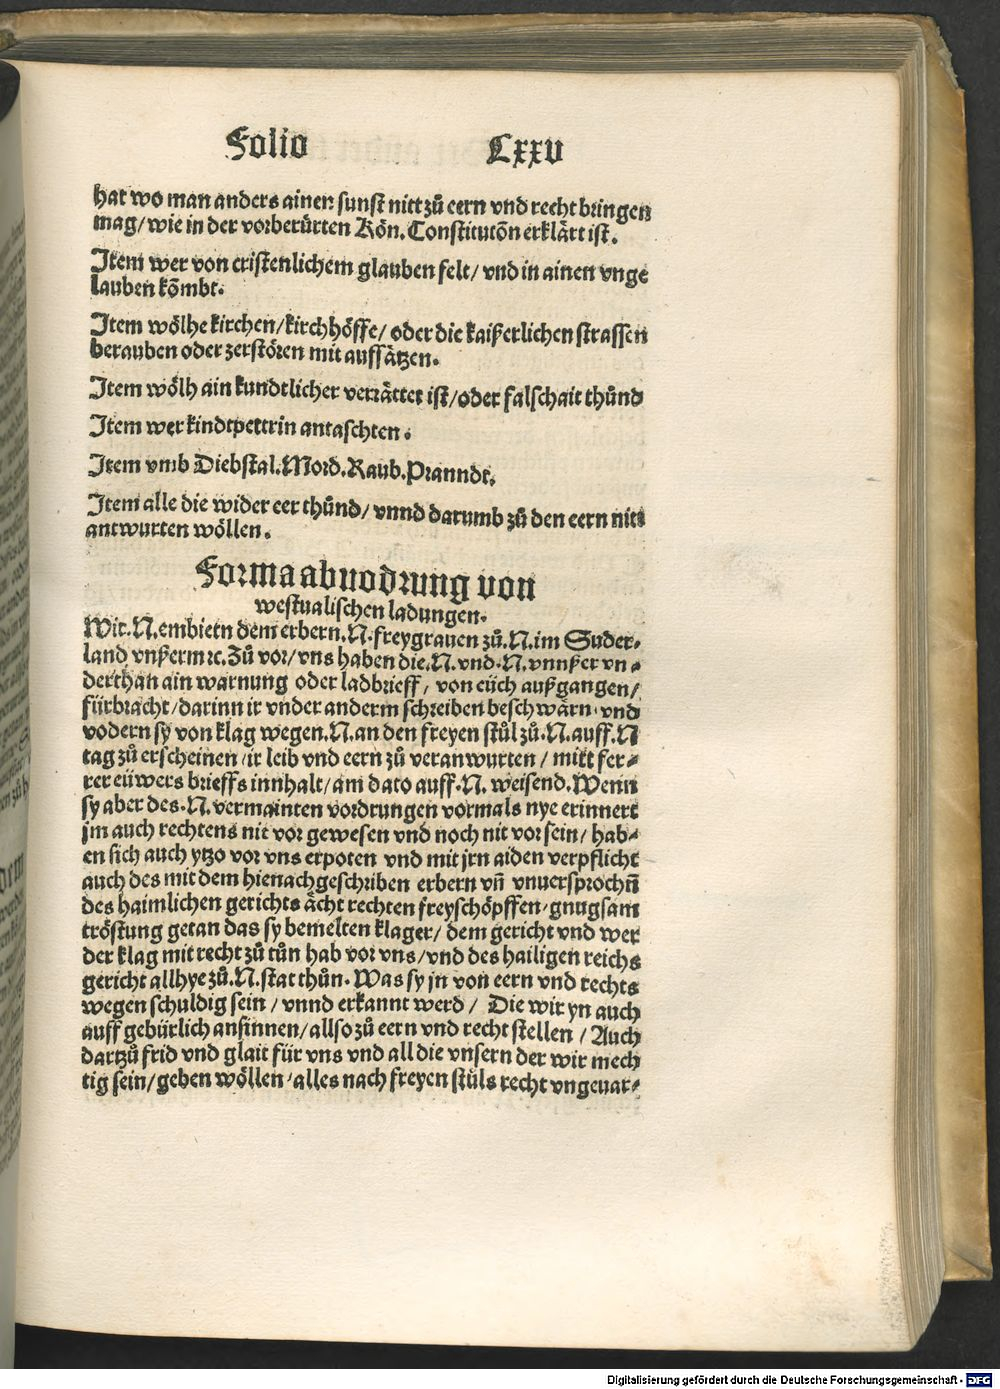 Folio Lxxv
hat wo man anders ainen sunst nitt zů eern vnd recht bringen
mag/ wie in der vorberürten Kön. Constitucõn erklärt ist.
Item wer von cristenlichem glauben felt/ vnd in ainen vnge
lauben kõmbt.
Item wölhe kirchen/ kirchhöffe/ oder die kaißerlichen strassen
berauben oder zerstören mit auffsätzen.
Item wölh ain kundtlicher verrätter ist/ oder falschait thůnd
Item wer kindtpettrin antaschten.
Item vmb Diebstal. Mord. Raub. Pranndt.
Item alle die wider eer thůnd/ vnnd darumb zů den eern nitt
antwurten wöllen.
Forma abuodrung von
westualischen ladungen.
Wir. N. embietn dem erbern. N. freygrauen zů. N. im Suder-
land vnßerm ꝛc. Zů vor/ vns haben die. N. vnd. N. vnnßer vn-
derthan ain warnung oder ladbrieff/ von eüch außgangen/
fürbracht/ darinn ir vnder anderm schreiben beschwärn. vnd
vodern sy von klag wegen. N. an den freyen stůl zů. N. auff. N
tag zů erscheinen/ ir leib vnd eern zů veranwurten/ mitt fer-
rer eüwers brieffs innhalt/ am dato auff. N. weisend. Wenn
sy aber des. N. vermainten vordrungen vormals nye erinnert
jm auch rechtens nit vor gewesen vnd noch nit vor sein/ hab-
en sich auch ytzo vor vns erpoten vnd mit jrn aiden verpflicht
auch des mit dem hienachgeschriben erbern vñ vnuersprochñ
des haimlichen gerichts ächt rechten freyschöpffen/ gnugsam
tröstung getan das sy bemelten klager/ dem gericht vnd wer
der klag mit recht zů tůn hab vor vns/ vnd des hailigen reichs
gericht allhye zů. N. stat thůn. Was sy jn von eern vnd rechts
wegen schuldig sein/ vnnd erkannt werd/ Die wir yn auch
auff gebürlich ansinnen/ allso zů eern vnd recht stellen/ Auch
dartzů frid vnd glait für vns vnd all die vnsern der wir mech
tig sein/ geben wöllen/ alles nach freyen stůls recht vngeuar-
Digitalisierung gefördert durch die Deutsche Forschungsgemeinschaft - DFG